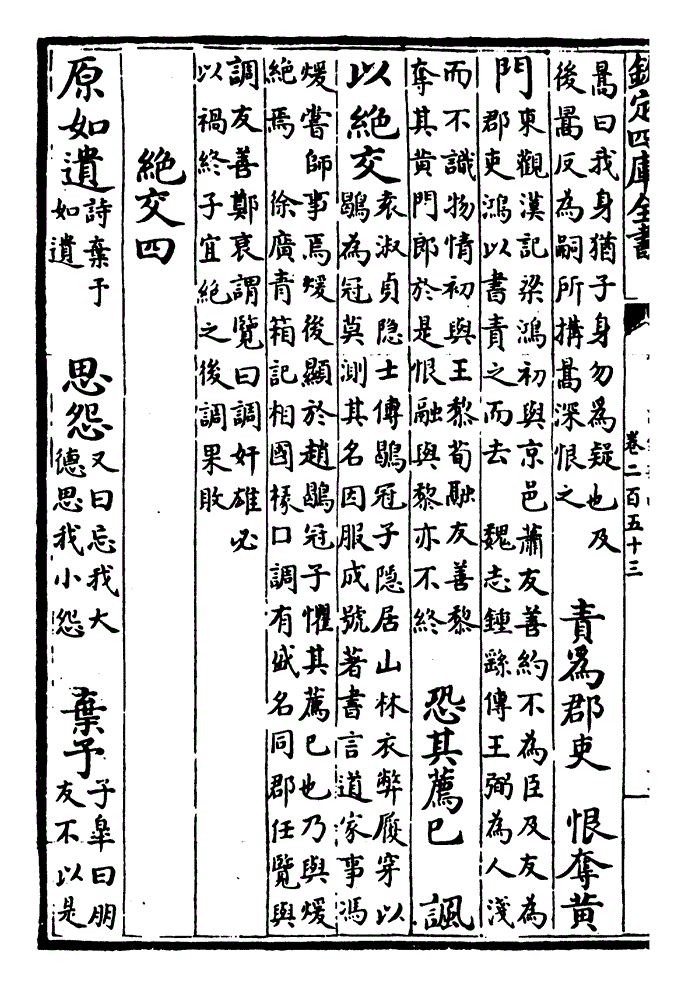 欽定四庫全書
卷二百五十三
暠曰我身猶子身勿為疑也及
後暠反為嗣所搆暠深恨之
責為郡吏 恨奪黃
門
東觀漢記梁鴻初與京邑蕭友善約不為臣及友為
郡吏鴻以書責之而去 魏志鍾繇傳王弼為人淺
而不識物情初與王黎荀融友善黎
奪其黃門郎於是恨融與黎亦不終
恐其薦已 諷
以絶交
袁淑貞隐士傳鶡冠子隱居山林衣弊履穿以
鶡為冠莫測其名因服成號著書言道家事馮
煖嘗師事焉煖後顯於趙鶡冠子懼其薦已也乃與煖
絶焉 徐廣青箱記相國掾口調有盛名同郡任覽與
調友善鄭袤謂覽曰調奸雄必
以禍終子宜絶之後調果敗
絶交四
原如遺
詩棄予
如遺
思怨
又曰忘我大
德思我小怨
棄予
子臯曰朋
友不以是